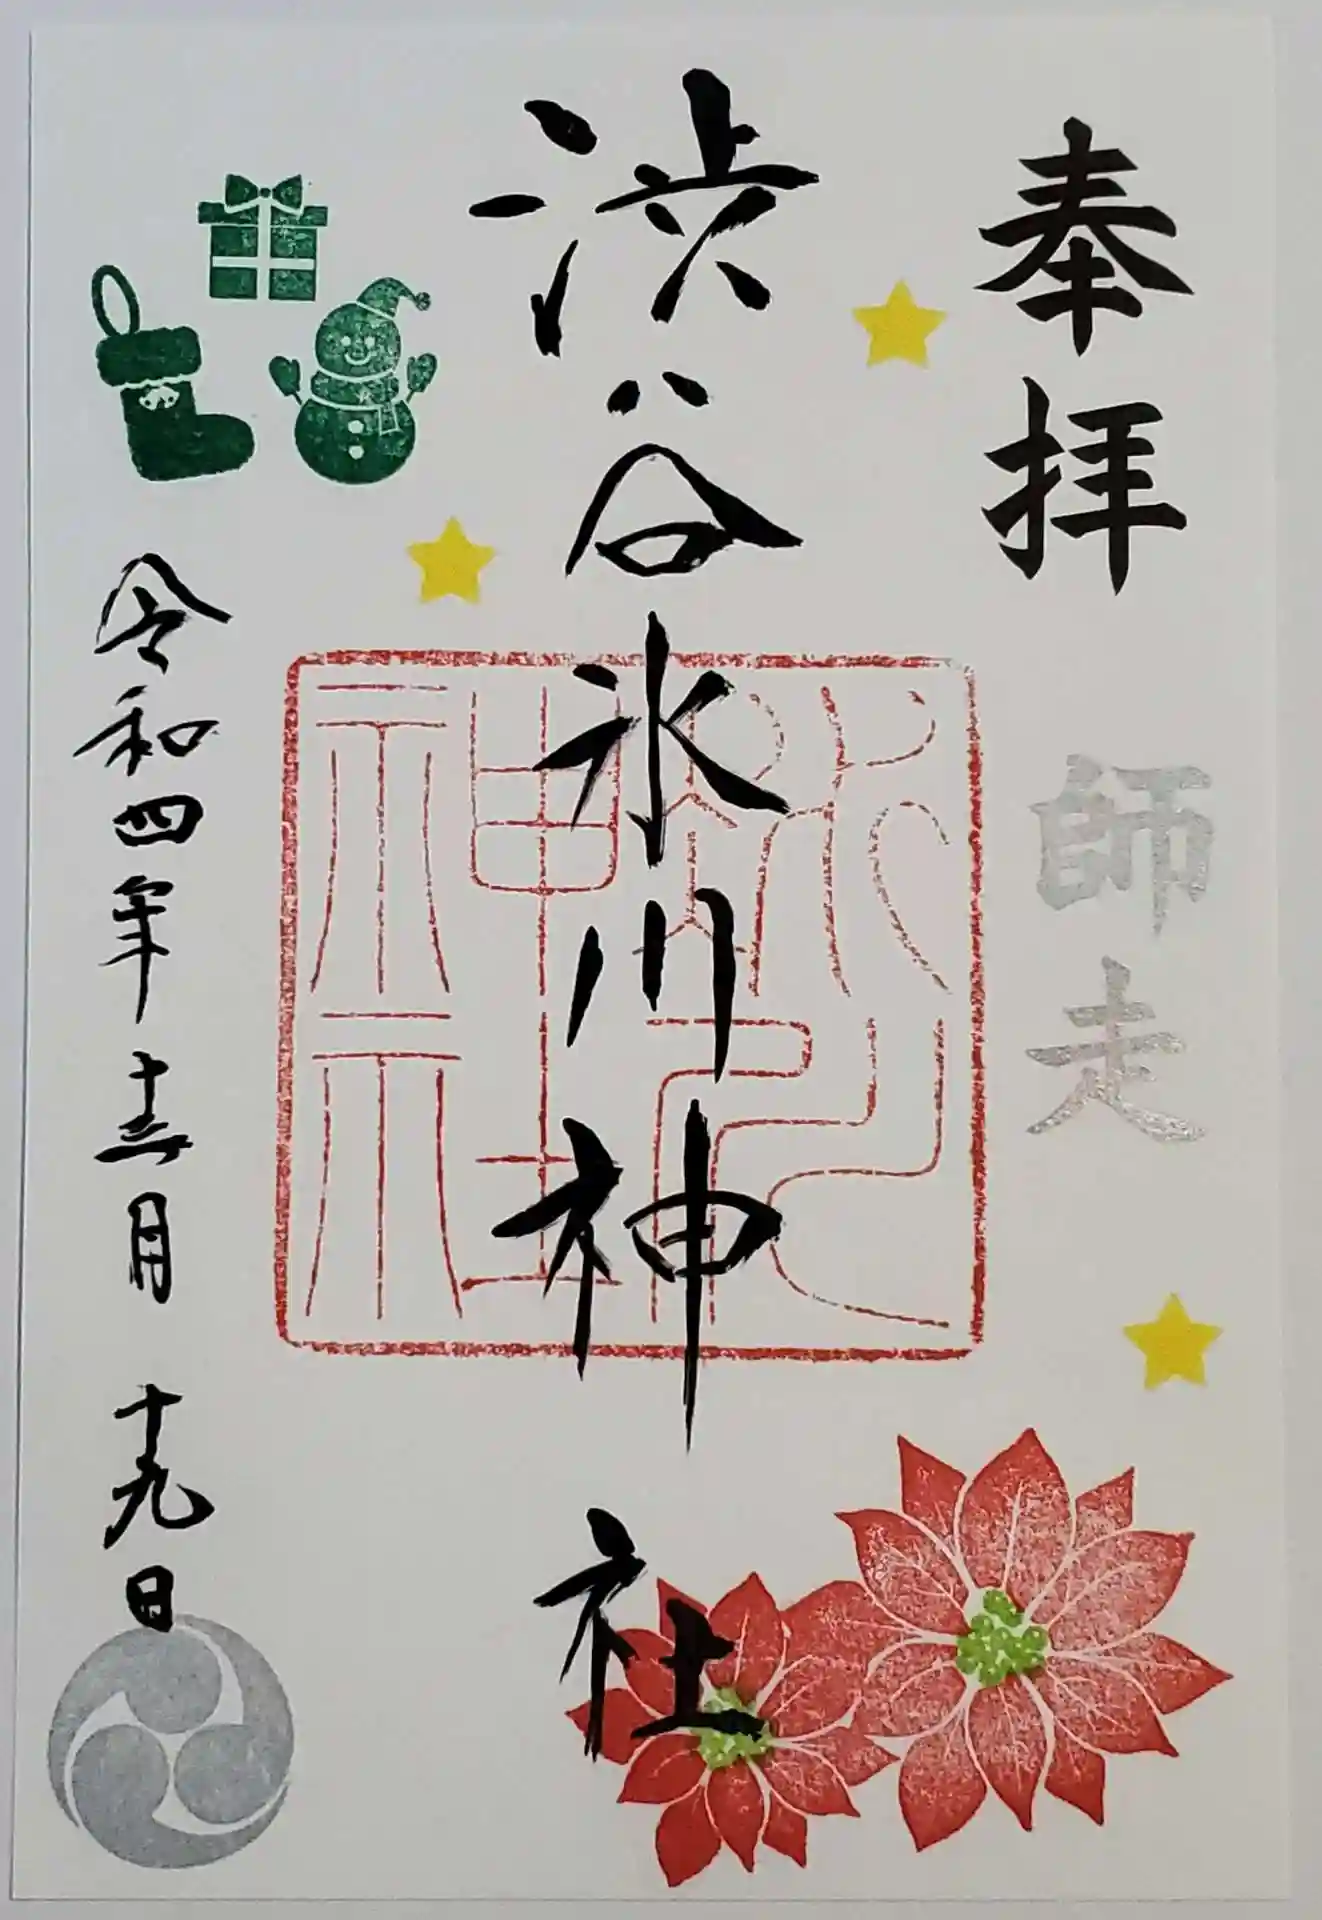 奉拝
師走
渋谷氷川神社
令和四年十二月十九日